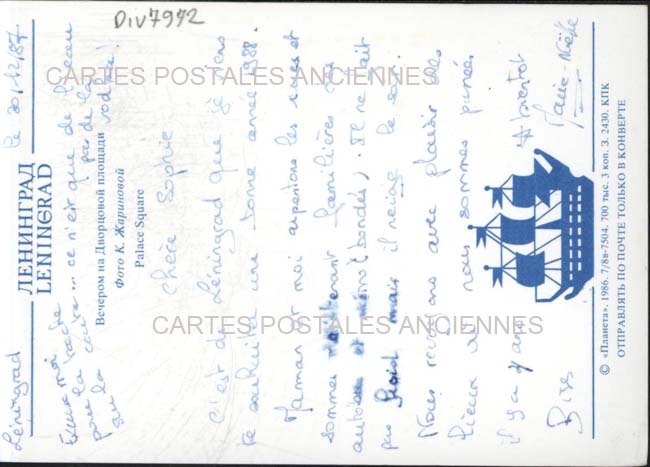 Div7972
Léningrad le 30/12/87
ЛЕНИНГРАД
LENINGRAD
Вечером на Дворцовой площади
Фото К. Жариновой
Palace Square
Excuse moi
pour la tache
sur la carte... ce n'est que de l'eau
pas de la
vodka!
Chère Sophie
C'est de Léningrad que je viens
te souhaite une bonne année 1988.
Maman et moi arpentons les rues et
sommes familières du
autobus et métro (bondés). Il ne fait
pas froid mais il neige le soir.
Nous revoyons avec plaisir les
lieux où nous sommes passés
il y a 7 ans. A bientôt
Bises Marie-Noëlle
© «Планета». 1986. 7/8в-7504. 700 тыс. 3 коп. З. 2430. КПК
ОТПРАВЛЯТЬ ПО ПОЧТЕ ТОЛЬКО В КОНВЕРТЕ
CARTES POSTALES ANCIENNES
CARTES POSTALES ANCIENNES